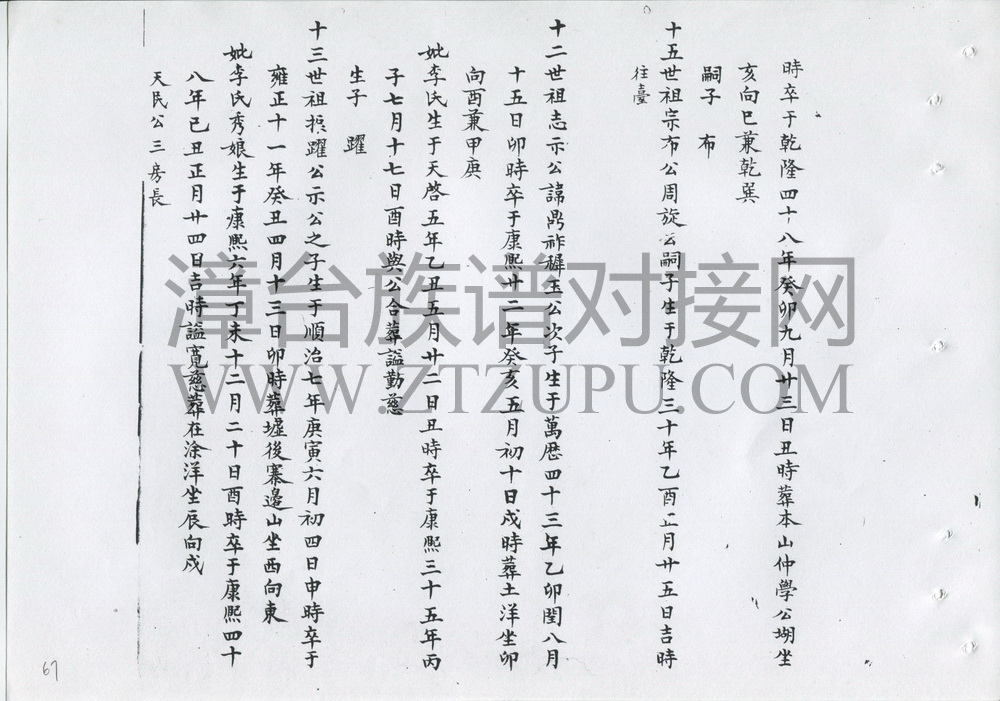 時卒于乾隆四十八年癸卯九月廿三日丑時葬本山仲學公坳坐
亥向巳兼乾巽
嗣子 布
十五世祖宗布公周旋公嗣子生于乾隆三十年乙酉正月廿五日吉時
往臺
十二世祖志示公諱鼎祚穉玉公次子生于萬歷四十三年乙卯閏八月
十五日卯時卒于康熙廿二年癸亥五月初十日戌時葬土洋坐卯
向酉兼甲庚
妣李氏生于天啓五年乙丑五月廿二日丑時卒于康熙三十五年丙
子七月十七日酉時與公合葬謚勤慈
生子 躍
十三世祖振躍公示公之子生于順治七年庚寅六月初四日申時卒于
雍正十一年癸丑四月十三日卯時葬墟後寨邊山坐西向東
妣李氏秀娘生于康熙六年丁未十二月二十日酉時卒于康熙四十
八年己丑正月廿四日吉時謚寬慈葬在涂洋坐辰向戌
天民公三房長
67
漳台族谱对接网
WWW.ZTZUPU.COM